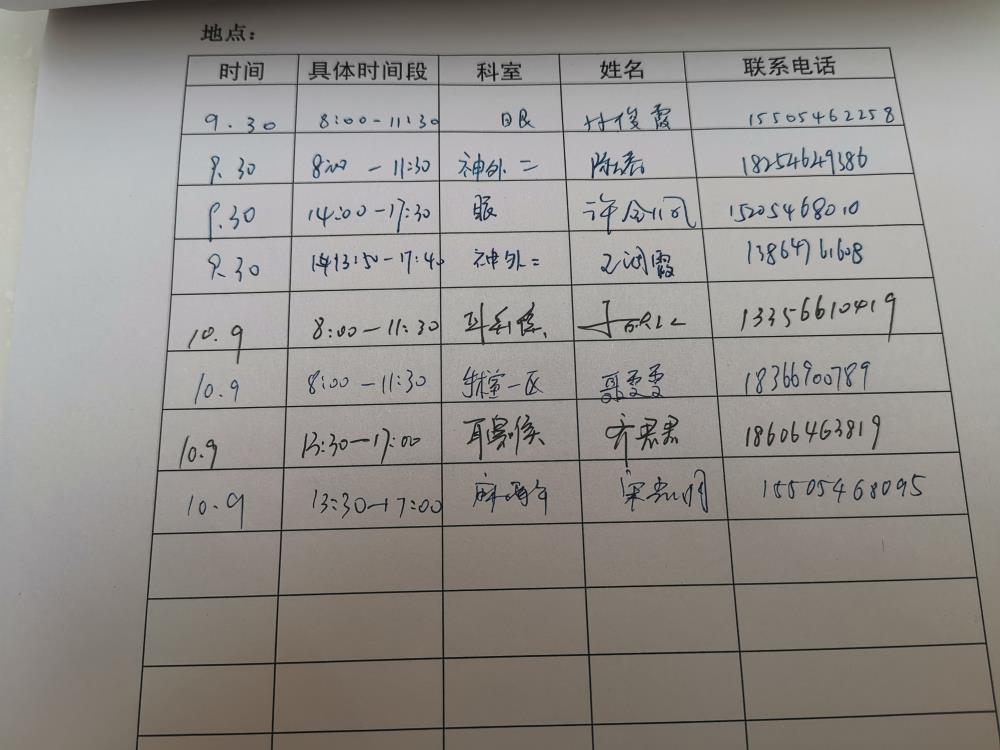 地点：
时间 具体时间段 科室 姓名 联系电话
9.30 8:00-11:30 眼 林俊霞 15505462258
9.30 8:00-11:30 神外二 18254649386
9.30 14:00-17:30 眼 许 15205468010
9.30 13:50-17:40 神外二 霞 13864761608
10.9 8:00-11:30 13356610419
10.9 8:00-11:30 一区 聂雯雯 18366900789
10.9 13:30-17:00 耳鼻喉 齐君君 18606463819
10.9 13:30-17:00 15505468095